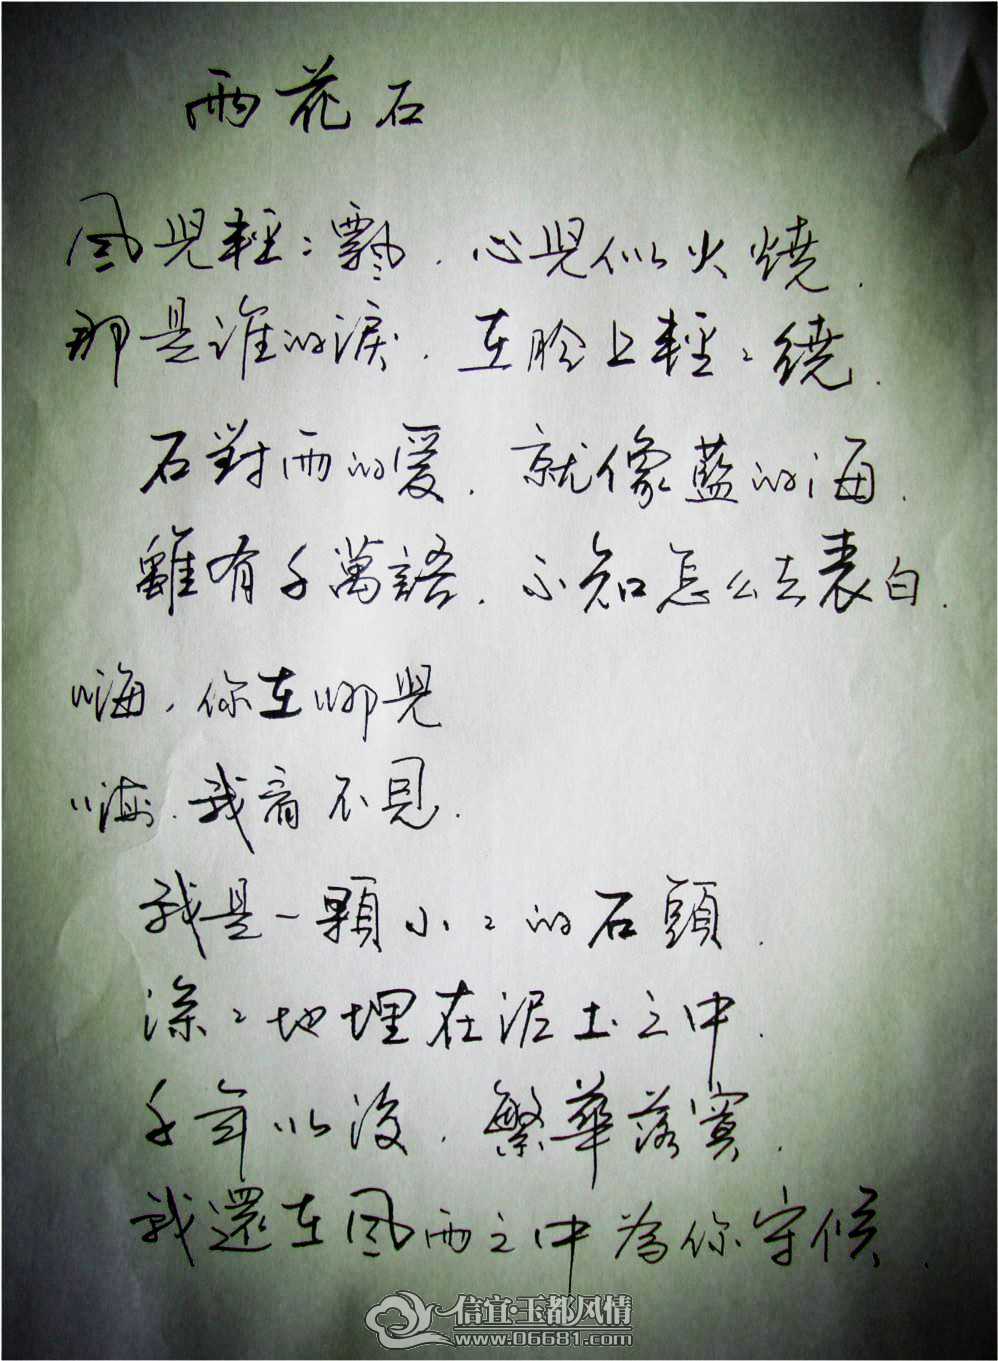 雨花石
風兒輕々飄．心兒似火燒．
那是誰的淚．在臉上輕々繞．
石對雨的愛．就像藍的海．
雖有千萬語．不知怎么去表白．
嗨，你在哪兒
嗨．我看不見．
我是一顆小々的石頭．
深々地埋在泥土之中．
千年以後．繁華落寞．
我還在風雨之中為你守候．
信宜·玉都风情
www.06681.com